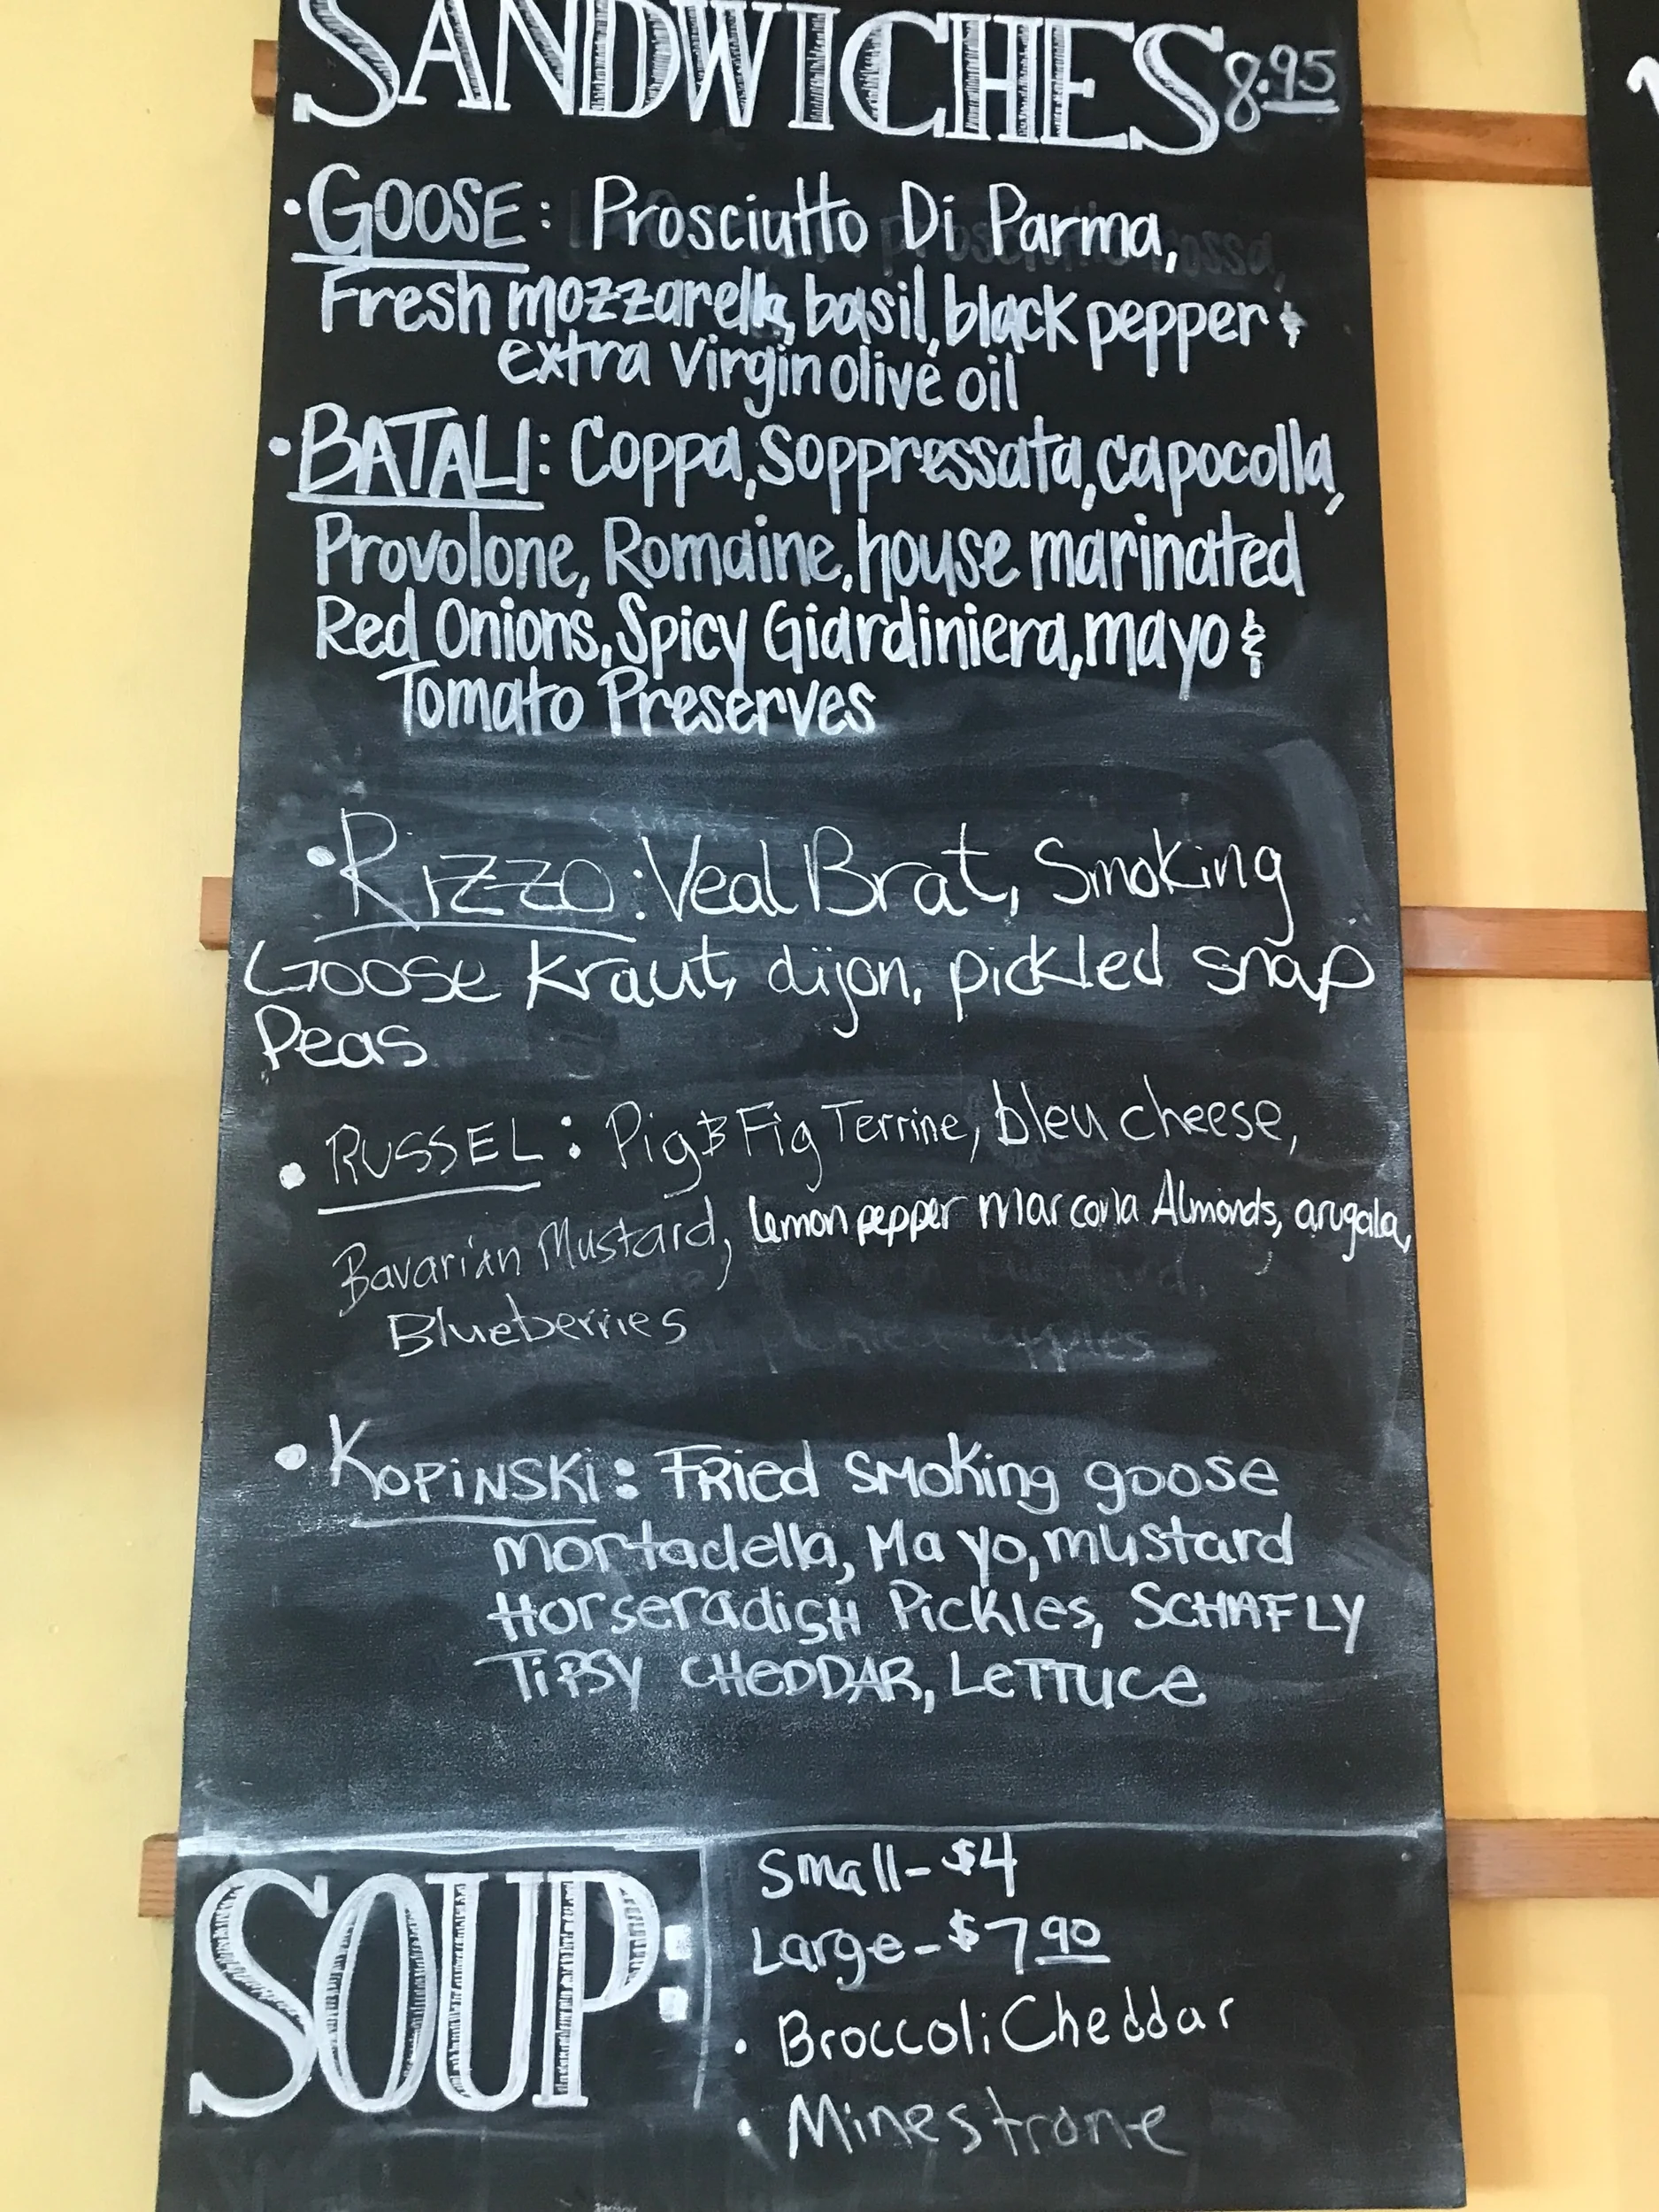 SANDWICHES 8.95
• GOOSE: Prosciutto Di Parma,
Fresh mozzarella, basil, black pepper &
extra virgin olive oil
• BATALI: Coppa, Soppressata, capocolla,
Provolone, Romaine, house marinated
Red Onions, Spicy Giardiniera, mayo &
Tomato Preserves
• RIZZO: Veal Brat, Smoking
Goose kraut, dijon, pickled snap
Peas
• RUSSEL: Pig & Fig Terrine, bleu cheese,
Bavarian Mustard, lemon pepper marcona Almonds, arugala,
Blueberries
• KOPINSKI: Fried SMOKing goose
mortadella, Mayo, mustard
HorseradisH Pickles, SCHAFLY
TiPSY CHeDDAR, LeTTuce
SOUP:
Small - $4
Large - $7.90
• Broccoli Cheddar
• Minestrone